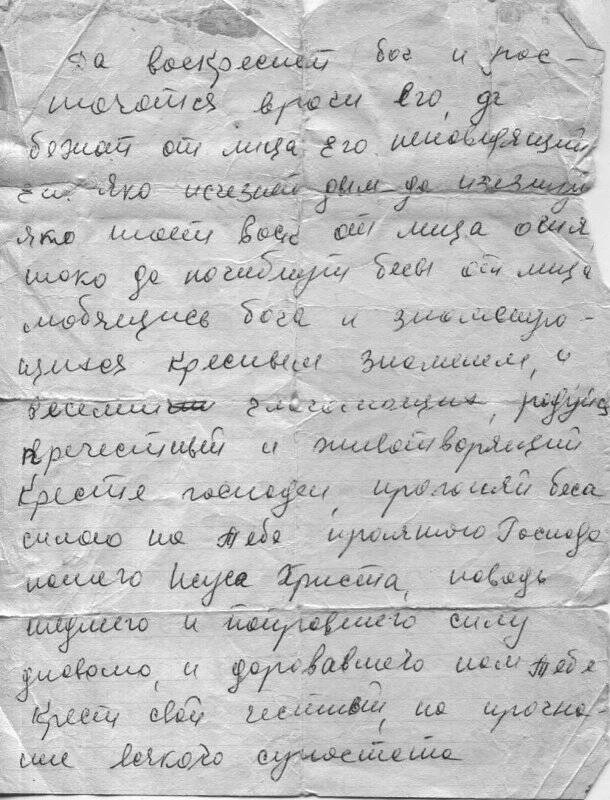 Да воскреснет бог и рас-
точатся враги Его, да
бежат от лица Его ненавидящий
Его. Яко исчезнет дым да изчезнут
яко тает воск от лица огня
тако да погибнут бесы от лица
любящись бога и знаменую-
щихся кресным знаменем, и
веселии глаголющих, радуйся
пречестный и животворящий
Кресте господен, прогоняй беса
силою на тебе пролятого Господа
нашего Исуса Христа, новадь
шедшего и поправшего силу
дияволю, и даровавшего нам тебе
Крест свой честный, на прогна-
ние всякого супостата